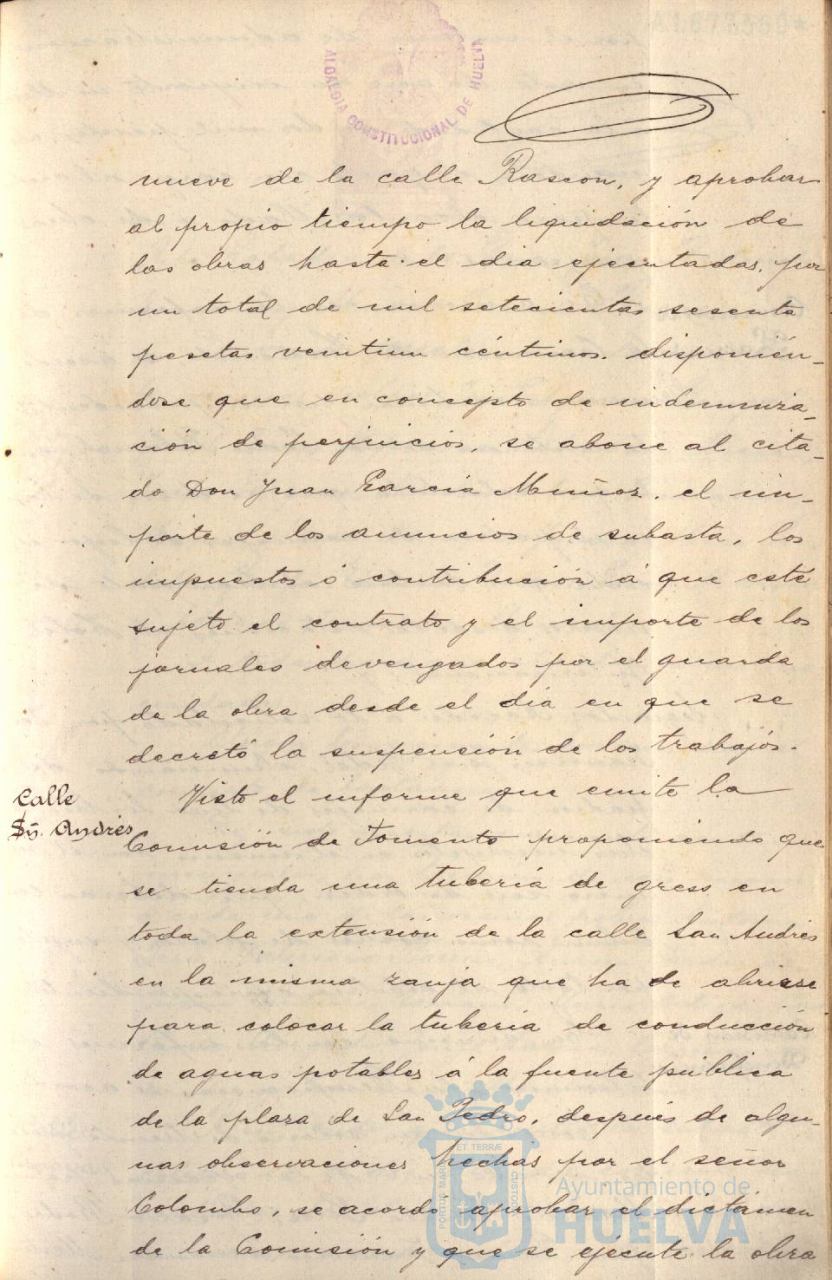 ALCALDIA CONSTITUCIONAL DE HUELVA
nueve de la calle Rascon, y aprobar
al propio tiempo la liquidación de
las obras hasta el dia ejecutadas, por
un total de mil setecientas sesenta
pesetas veintiun céntimos. disponién-
dose que en concepto de indemniza-
ción de perjuicios, se abone al cita-
do Don Juan Garcia Muñoz, el im-
porte de los anuncios de subasta, los
impuestos ó contribución á que esté
sujeto el contrato y el importe de los
jornales devengados por el guarda
de la obra desde el dia en que se
decretó la suspensión de los trabajos.
Calle
Sn. Andrés
Visto el informe que emite la
Comisión de Fomento proponiendo que
se tienda una tuberia de gress en
toda la extensión de la calle San Andrés
en la misma zanja que ha de abrirse
para colocar la tuberia de conducción
de aguas potables á la fuente pública
de la plaza de San Pedro, después de algu-
nas observaciones hechas por el señor
Colombo, se acordó aprobar el dictámen
de la Comisión y que se ejecute la obra
PORTUS MARIS ET TERRÆ CUSTODIA
Ayuntamiento de
HUELVA